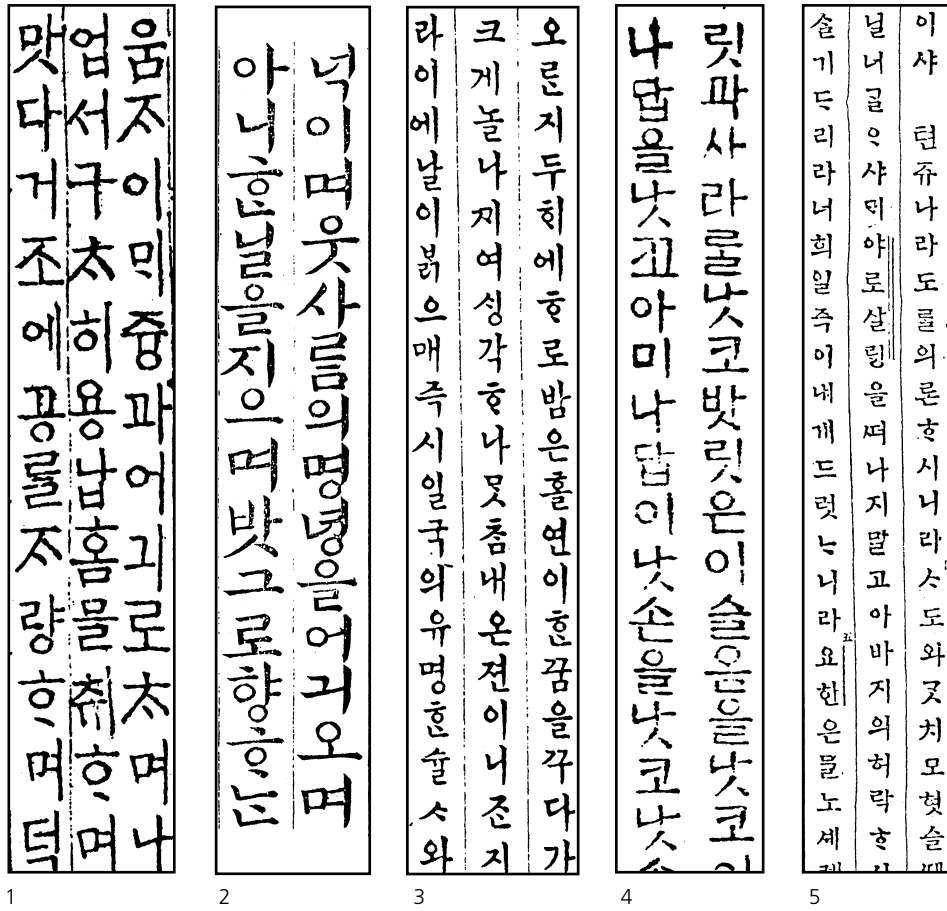 움ᄌᆞ이ᄆᆡ즁과어긔로ᄎᆞ며나
업서구ᄎᆞ히용납홈믈취ᄒᆞ며
맛다거조에공를ᄌᆞ랑ᄒᆞ며덕
1
넉이며웃사ᄅᆞᆷ의명녕을어긔오며
아니ᄒᆞᆫ 을지으며밧그로향ᄒᆞᄂᆞᆫ
2
오ᄅᆞᆫ지두ᄒᆡ에ᄒᆞ로밤은홀연이ᄒᆞᆫ꿈을꾸다가
크게놀나ᄭᆡ여ᄉᆡᆼ각ᄒᆞ나ᄆᆞᆺᄎᆞᆷ내온젼이니ᄌᆞᆫ지
라이에날이ᄇᆞᆰ으매즉시일국의유명ᄒᆞᆫ슐ᄉᆞ와
3
릿과사라를낫코밧릿은이슬은을낫코이
나답을낫코아미나답이낫손을낫코낫
4
이샤 텬쥬나라도를의론ᄒᆞ시니라ᄉᆞ도와ᄀᆞᆺ치모혓슬
닐너ᄀᆞᆯᄋᆞ샤ᄃᆡ야로살릥을ᄯᅥ나지말고아바지의허락ᄒᆞ
솔기ᄃᆞ리라너희일즉이네게드럿ᄂᆞ니라五요한은믈노셰
5